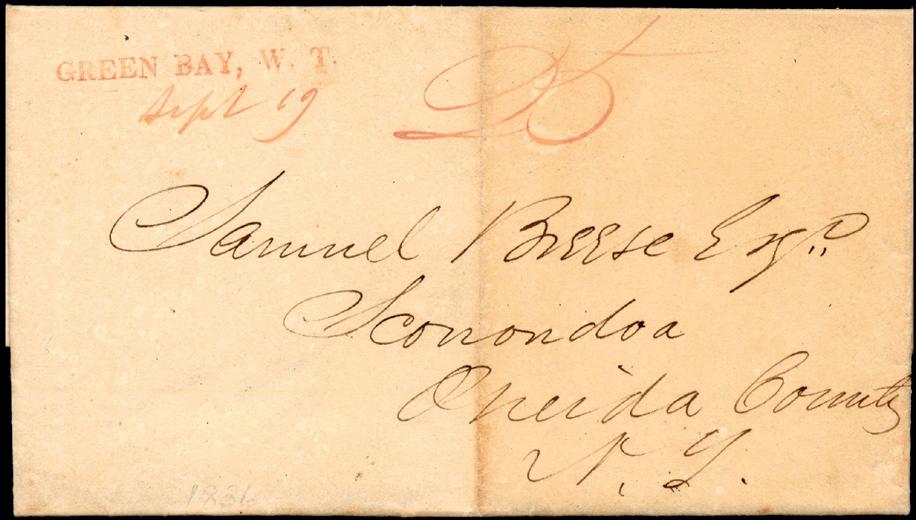 GREEN BAY, W. T.
Sept 19
25
Samuel Breese Esqr.
Sconondoa
Oneida County
N. Y.